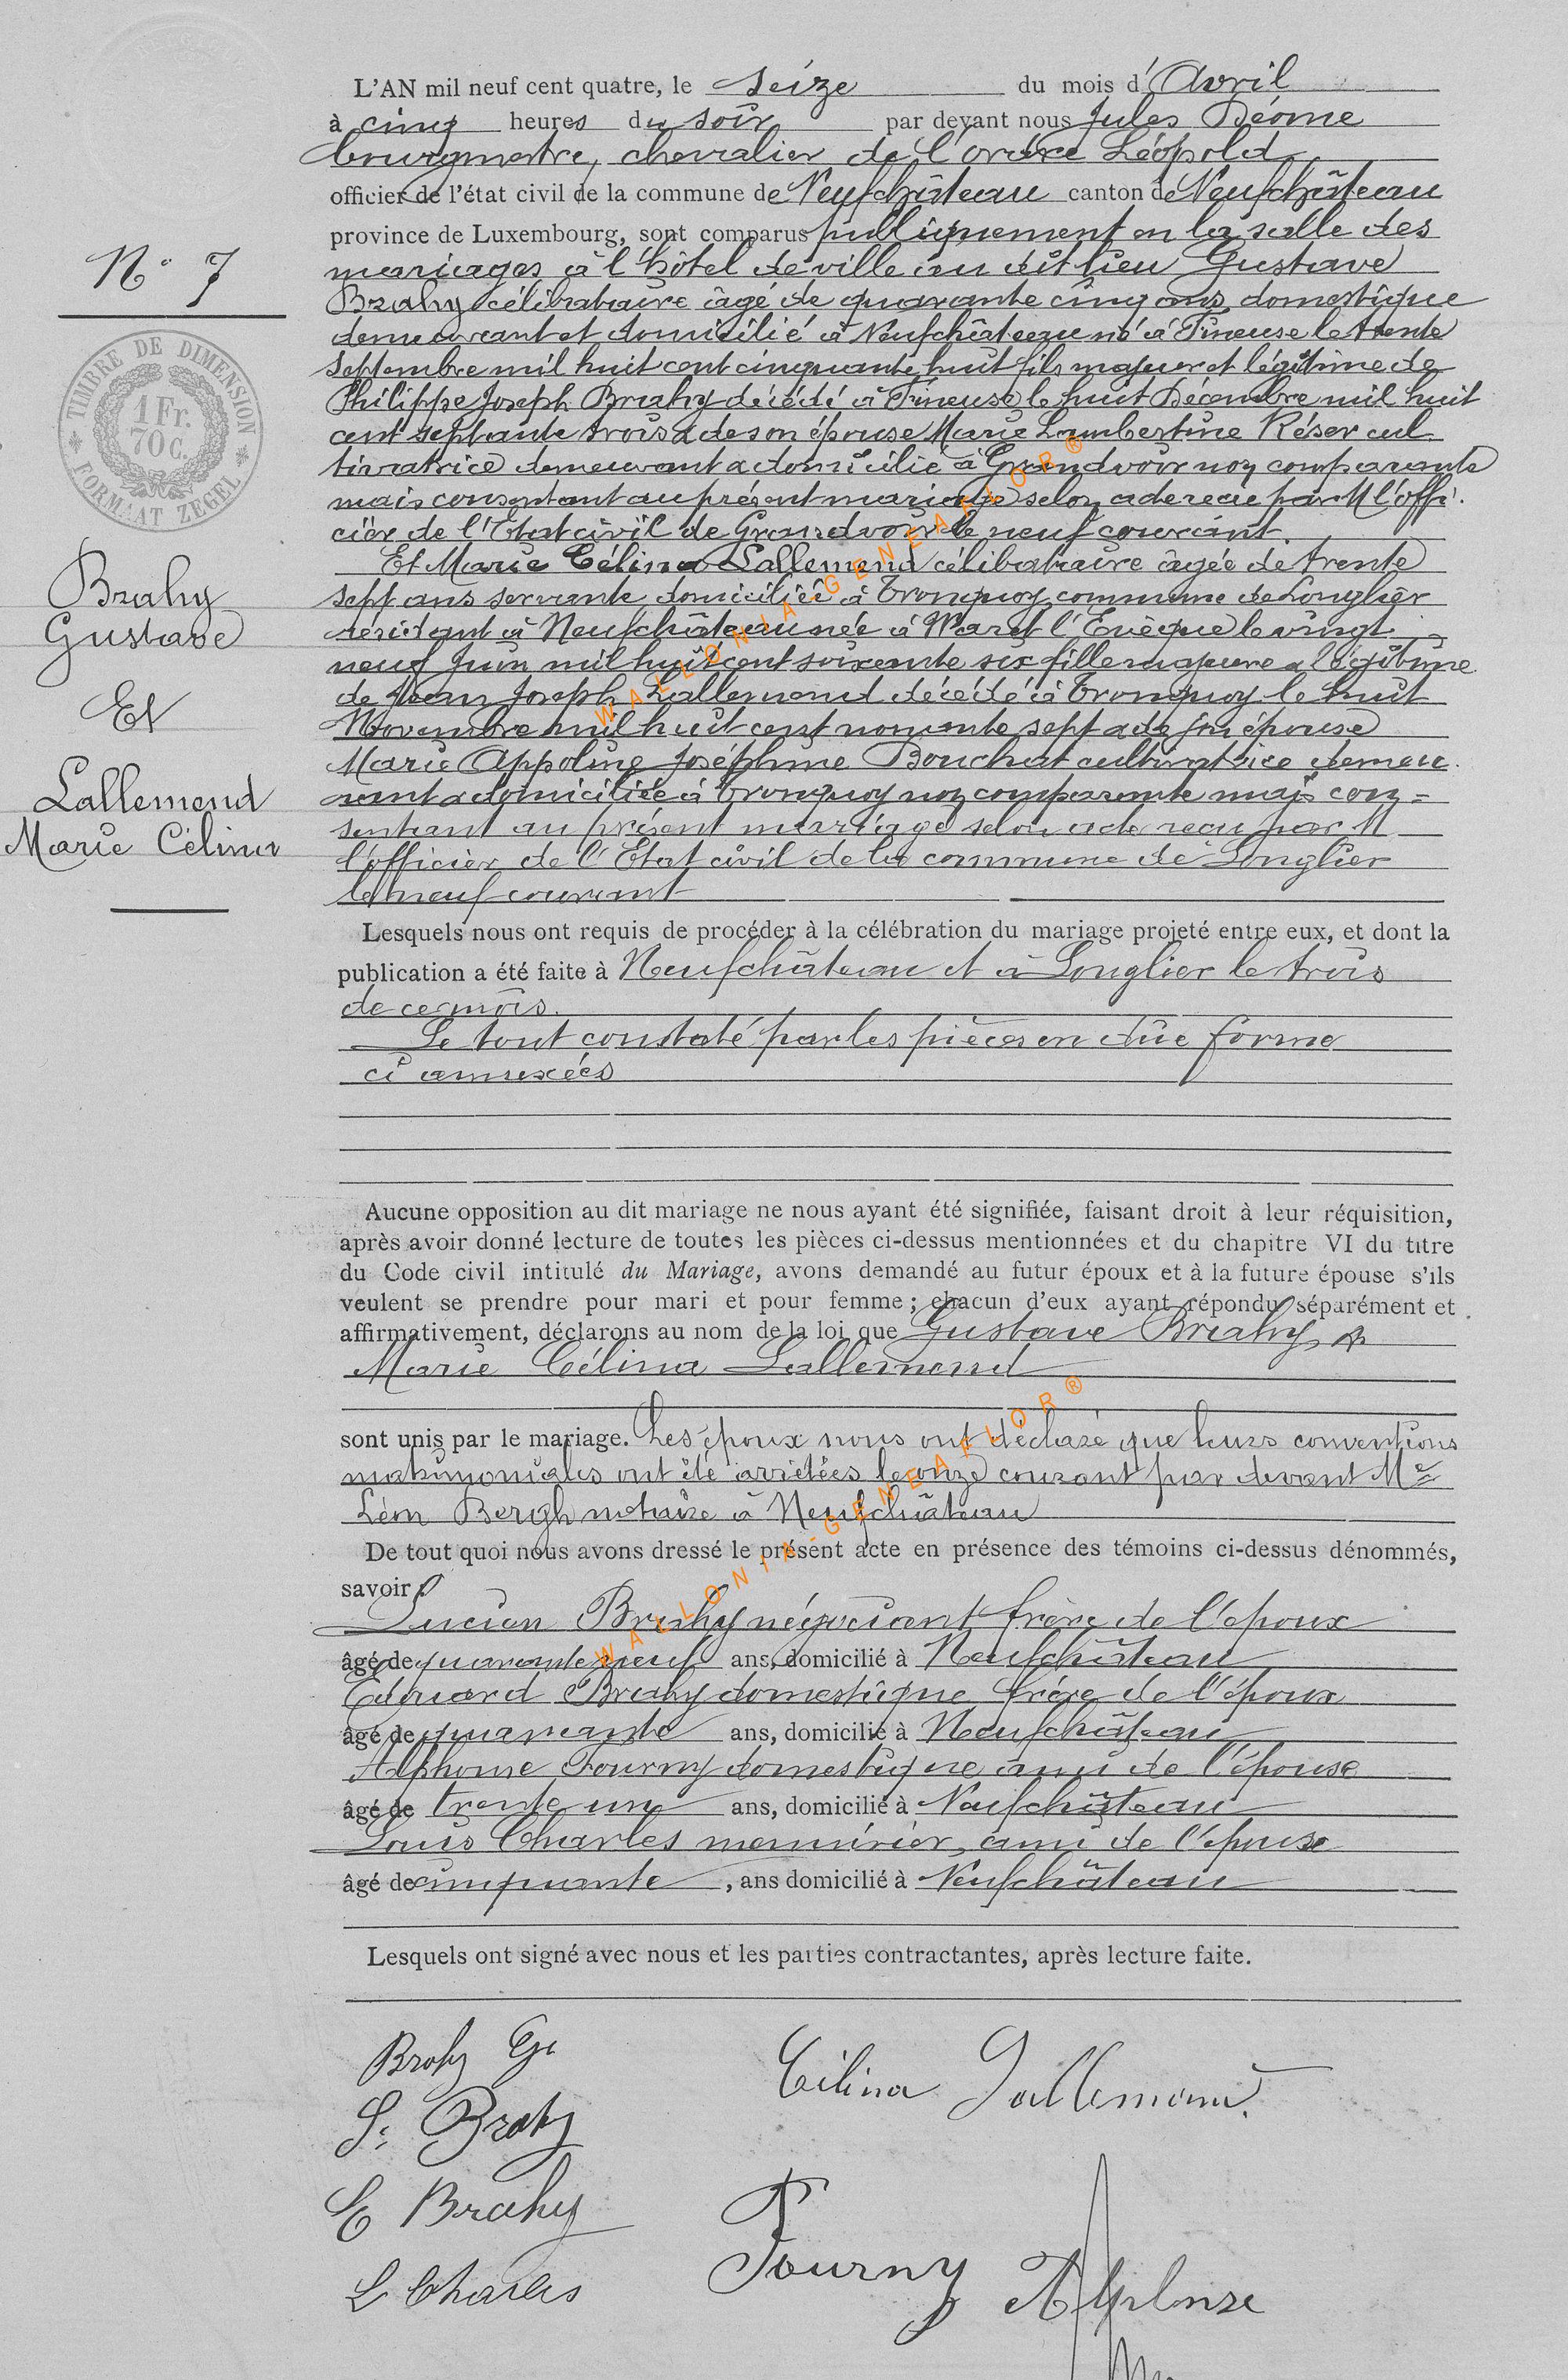 L'AN mil neuf cent quatre, le seize du mois d'Avril
à cinq heures du soir par devant nous Jules Déome
bourgmestre, chevalier de l'ordre Léopold
officier de l'état civil de la commune de Neufchâteau canton de Neufchâteau
province de Luxembourg, sont comparus publiquement en la salle des
mariages à l'hôtel de ville au dit lieu Gustave
N° 7
Brahy célibataire âgé de quarante cinq ans, domestique
demeurant et domicilié à Neufchâteau né à Tineuse le trente
Septembre mil huit cent cinquante huit fils majeur et légitime de
TIMBRE DE DIMENSION
1 Fr.
70 C.
FORMAAT ZEGEL
Philippe Joseph Brahy décédé à Tineuse le huit Décembre mil huit
cent septante trois & de son épouse Marie Lambertine Réser cul
tivatrice demeurant & domicilié à Grandvoir non comparante
mais consentant au présent mariage selon acte reçu par M l'offi.
cier de l'Etat civil de Grandvoir le neuf courant.
Brahy
Gustave
Et
Lallemend
Marie Célina
Et Marie Célina Lallemend célibataire âgée de trente
sept ans servante, domiciliée à Tronquoy commune de Longlier
résidant à Neufchâteau née à Waret l'Evèque le vingt
neuf Juin mil huit cent soixante six fille majeure & légitime
de Jean Joseph Lallemend décédé à Tronquoy le huit
Novembre mil huit cent nonante sept & de son épouse
Marie Appoline Joséphine Bouchat cultivatrice demeu
rant & domiciliée à Tronquoy non comparante mais con=
sentant au présent mariage selon acte reçu par M
l'officier de l'Etat civil de la commune de Longlier
le neuf courant
Lesquels nous ont requis de procéder à la célébration du mariage projeté entre eux, et dont la
publication a été faite à Neufchâteau et à Longlier le trois
de ce mois.
Le tout constaté par les pièces en dûe forme
ci annexées
Aucune opposition au dit mariage ne nous ayant été signifiée, faisant droit à leur réquisition,
après avoir donné lecture de toutes les pièces ci-dessus mentionnées et du chapitre VI du titre
du Code civil intitulé du Mariage, avons demandé au futur époux et à la future épouse s'ils
veulent se prendre pour mari et pour femme ; chacun d'eux ayant répondu séparément et
affirmativement, déclarons au nom de la loi que Gustave Brahy &
Marie Célina Lallemend
sont unis par le mariage. Les époux nous ont déclaré que leurs conventions
matrimoniales ont été arrêtées le onze courant par devant Me
Léon Bergh notaire à Neufchâteau
De tout quoi nous avons dressé le présent acte en présence des témoins ci-dessus dénommés,
savoir :
Lucien Brahy négociant frère de l'époux
âgé de quarante neuf ans, domicilié à Neufchâteau
Edouard Brahy domestique frère de l'époux
âgé de quarante ans, domicilié à Neufchâteau
Alphonse Fourny domestique ami de l'épouse
âgé de trente un ans, domicilié à Neufchâteau
Louis Charles menuisier, ami de l'épouse
âgé de cinquante, ans domicilié à Neufchâteau
Lesquels ont signé avec nous et les parties contractantes, après lecture faite.
Brahy G.
Célina Lallemend.
L. Brahy
E Brahy
Fourny Alphonse
L Charles
WALLONIA-GENEALOR®
WALLONIA-GENEALOR®